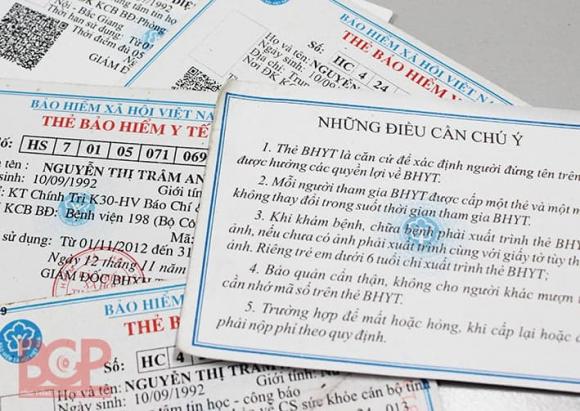 /1992
Nội - Bắc Giang
KCB BĐ:Phòng
tâm tin họ
Thời hạn sử dụng: Từ 01
Thời điểm đủ 05
GIÁM Đ
BẢO HIỂM XÃ HỘI VIỆT N
THẺ BẢO HIỂM Y TẾ
Số: HC 4 24
Họ và tên: NGUYỄN
Ngày sinh: 10/09
Địa chỉ: Trun
Nơi ĐK K
BẢO HIỂM XÃ HỘI VIỆT NA
THẺ BẢO HIỂM Y TẾ
HS 7 01 05 071 069
tên : NGUYỄN THỊ TRÂM AN
sinh: 10/09/1992 Giới tính
: KT Chính Trị K30-HV Báo Chí
KCB BĐ: Bệnh viện 198 (Bộ Cô
Mã:
sử dụng: Từ 01/11/2012 đến 31
Ngày 12 tháng 11 năm
GIÁM ĐỐC BHXH T
NHỮNG ĐIỀU CẦN CHÚ Ý
1. Thẻ BHYT là căn cứ để xác định người đứng tên trên
được hưởng các quyền lợi về BHYT.
2. Mỗi người tham gia BHYT được cấp một thẻ và một m
không thay đổi trong suốt thời gian tham gia BHYT.
3. Khi khám bệnh, chữa bệnh phải xuất trình thẻ BHYT
ảnh, nếu chưa có ảnh phải xuất trình cùng với giấy tờ tùy th
ảnh. Riêng trẻ em dưới 6 tuổi chỉ xuất trình thẻ BHYT;
4. Bảo quản cẩn thận, không cho người khác mượn
cần nhớ mã số trên thẻ BHYT.
5. Trường hợp để mất hoặc hỏng, khi cấp lại hoặc
phải nộp phí theo quy định.
BẢO HIỂM XÃ HỘI
THẺ BẢO HIỂM
Số: HC 4
Họ và tên: NGUYỄN THỊ TRÂM
Ngày sinh: 10/09/1992 Giới tính: N
tâm tin học - công báo
vệ CS sức khỏe cán bộ tỉnh
013
BGP